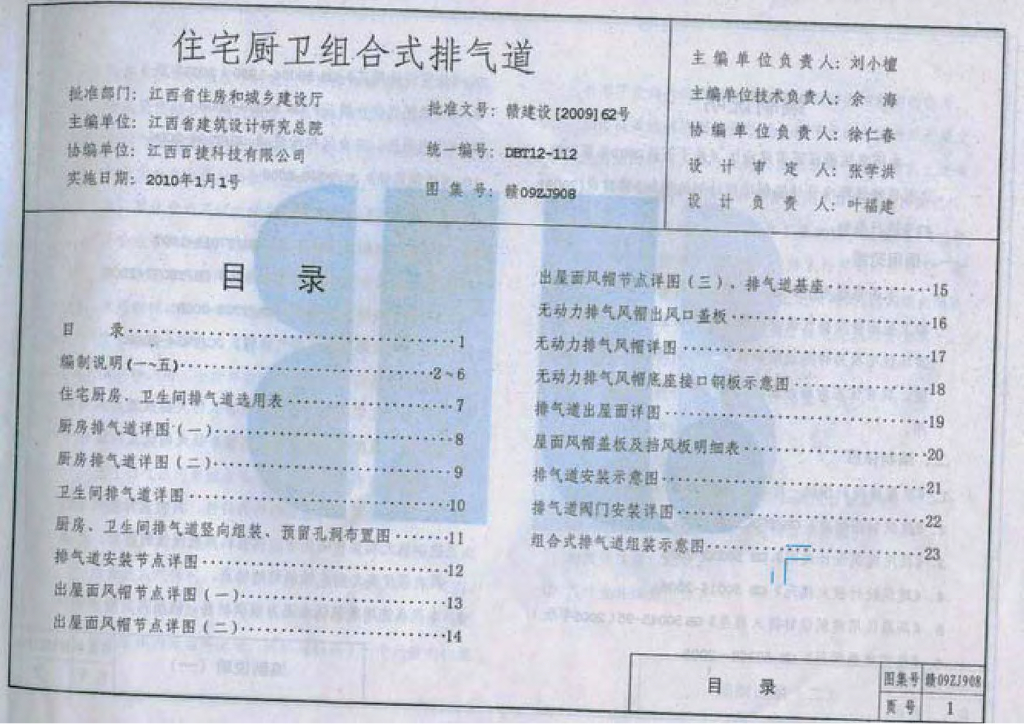 住宅厨卫组合式排气道
批准部门：江西省住房和城乡建设厅
主编单位：江西省建筑设计研究总院
协编单位：江西百捷科技有限公司
实施日期：2010年1月1号
批准文号：赣建设[2009]62号
统一编号：DBT12-112
图集号：赣09ZJ908
主编单位负责人：刘小檀
主编单位技术负责人：余海
协编单位负责人：徐仁春
设计审定人：张学洪
设计负责人：叶福建
目 录
目 录 1
编制说明(一~五) 2~6
住宅厨房、卫生间排气道选用表 7
厨房排气道详图(一) 8
厨房排气道详图(二) 9
卫生间排气道详图 10
厨房、卫生间排气道竖向组装、预留孔洞布置图 11
排气道安装节点详图 12
出屋面风帽节点详图(一) 13
出屋面风帽节点详图(二) 14
出屋面风帽节点详图(三)、排气道基座 15
无动力排气风帽出风口盖板 16
无动力排气风帽详图 17
无动力排气风帽底座接口钢板示意图 18
排气道出屋面详图 19
屋面风帽盖板及挡风板明细表 20
排气道安装示意图 21
排气道阀门安装详图 22
组合式排气道组装示意图 23
目 录
图集号 赣09ZJ908
页号 1